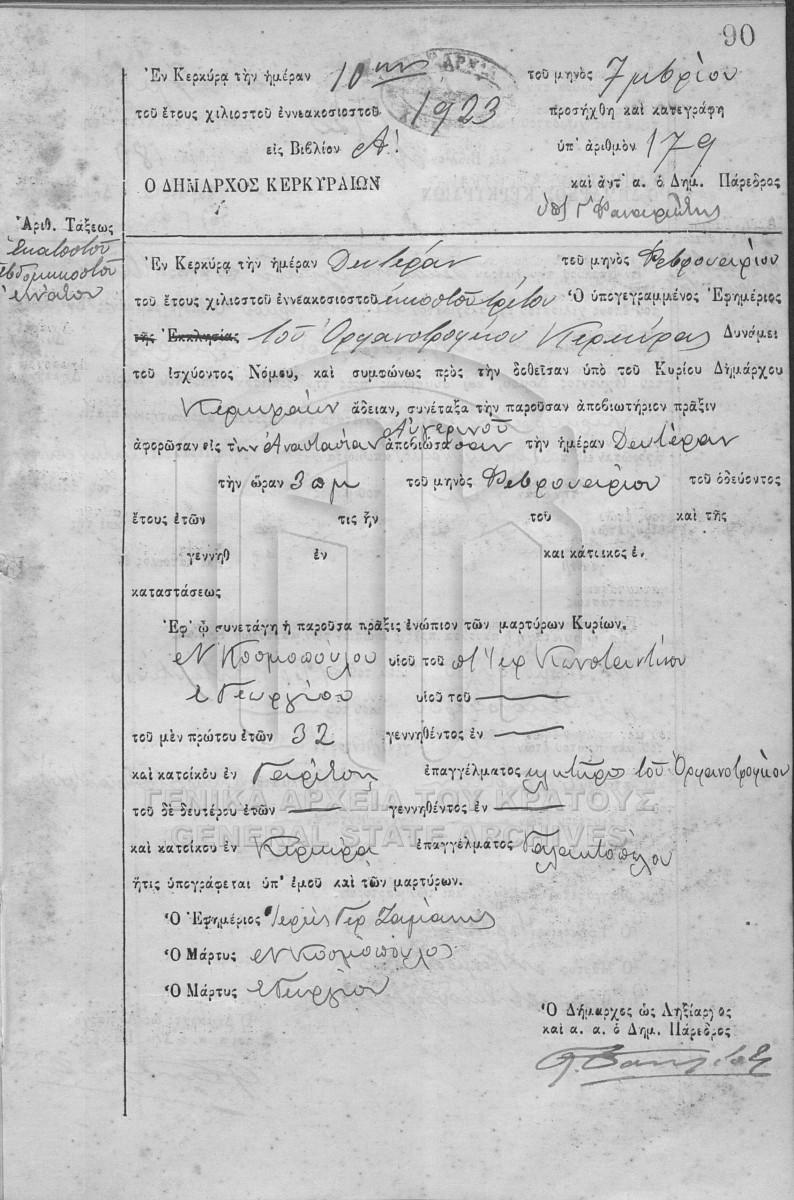 90
Ἐν Κερκύρᾳ τὴν ἡμέραν 10ην τοῦ μηνὸς 7μβρίου
τοῦ ἔτους χιλιοστοῦ ἐννεακοσιοστοῦ 1923 προσήχθη καὶ κατεγράφη
εἰς Βιβλίον Α! ὑπ' ἀριθμὸν 179
Ο ΔΗΜΑΡΧΟΣ ΚΕΡΚΥΡΑΙΩΝ καὶ ἀντ' α. ὁ Δημ. Πάρεδρος
Ἀριθ. Τάξεως
Ἑκατοστοῦ
ἑβδομηκοστοῦ
ἐννάτου
Ἐν Κερκύρᾳ τὴν ἡμέραν Δευτέραν τοῦ μηνὸς Φεβρουαρίου
τοῦ ἔτους χιλιοστοῦ ἐννεακοσιοστοῦ εἰκοστοῦ τρίτου Ὁ ὑπογεγραμμένος Ἐφημέριος
τῆς Ἐκκλησίας τοῦ Ὀρφανοτροφείου Κερκύρας Δυνάμει
τοῦ Ἰσχύοντος Νόμου, καὶ συμφώνως πρὸς τὴν δοθεῖσαν ὑπὸ τοῦ Κυρίου Δημάρχου
Κερκυραίων ἄδειαν, συνέταξα τὴν παροῦσαν ἀποβιωτήριον πρᾶξιν
Αὐγερινοῦ
ἀφορῶσαν εἰς τὴν Ἀναστασίαν ἀποβιώσασαν τὴν ἡμέραν Δευτέραν
τὴν ὥραν 3 πμ τοῦ μηνὸς Φεβρουαρίου τοῦ ὁδεύοντος
ἔτους ἐτῶν τις ἦν τοῦ καὶ τῆς
γεννηθ ἐν καὶ κάτοικος ἐν
καταστάσεως
Ἐφ' ᾧ συνετάγη ἡ παροῦσα πρᾶξις ἐνώπιον τῶν μαρτύρων Κυρίων.
Ν Κοσμοπούλου υἱοῦ τοῦ Κωνσταντίνου
Γεωργίου υἱοῦ τοῦ —
τοῦ μὲν πρώτου ἐτῶν 32 γεννηθέντος ἐν —
καὶ κατοίκου ἐν Γαρίτσῃ ἐπαγγέλματος κλητῆρος τοῦ Ὀρφανοτροφείου
τοῦ δὲ δευτέρου ἐτῶν — γεννηθέντος ἐν —
ΓΕΝΙΚΑ ΑΡΧΕΙΑ ΤΟΥ ΚΡΑΤΟΥΣ
GENERAL STATE ARCHIVES
καὶ κατοίκου ἐν Κερκύρᾳ ἐπαγγέλματος
ἥτις ὑπογράφεται ὑπ' ἐμοῦ καὶ τῶν μαρτύρων.
Ὁ Ἐφημέριος Ἱερεὺς
Ὁ Μάρτυς Ν Κοσμόπουλος
Ὁ Μάρτυς Γεωργίου
Ὁ Δήμαρχος ὡς Ληξίαρχος
καὶ α. α. ὁ Δημ. Πάρεδρος